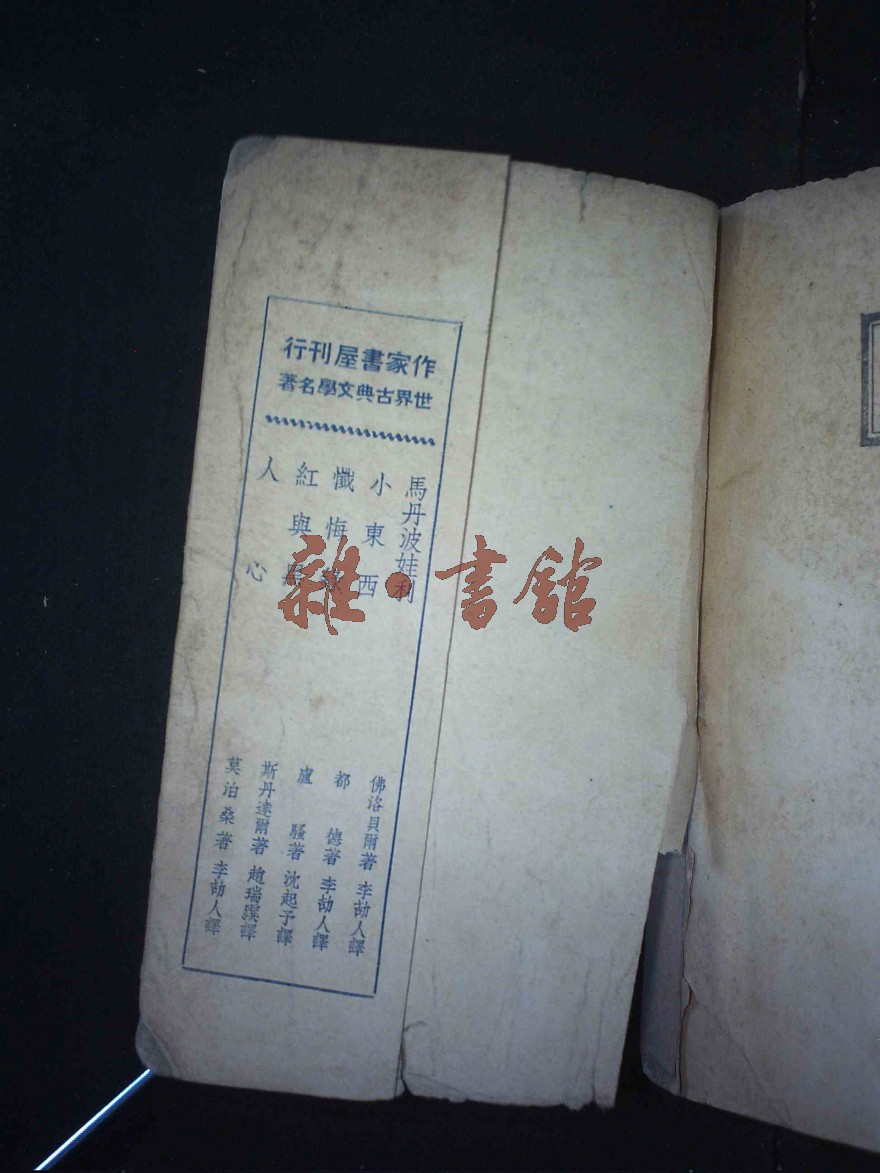 作家書屋刊行
世界古典文學名著
馬丹波娃利 佛洛貝爾著 李劼人譯
小東西 都德著 李劼人譯
懺悔錄 盧騷著 沈起予譯
紅與黑 斯丹達爾著 趙瑞譯
人心 莫泊桑著 李劼人譯
雜·書館